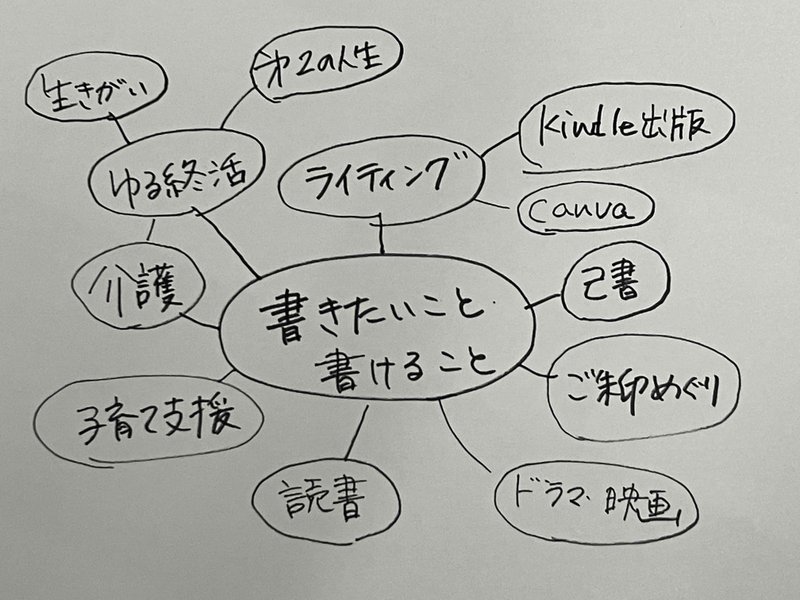 生きがい
第2の人生
ゆる終活
ライティング
Kindle出版
Canva
介護
書きたいこと
書けること
己書
ご朱印めぐり
子育て支援
読書
ドラマ・映画